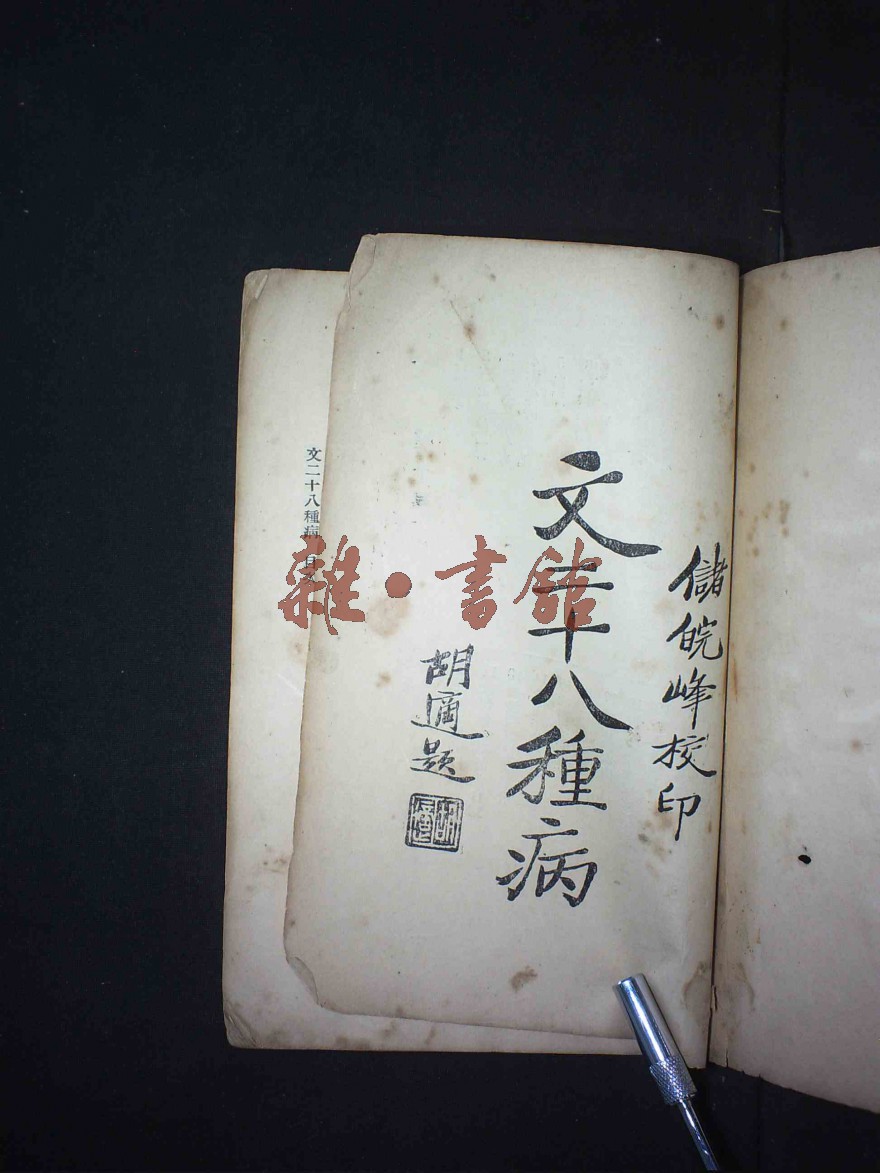 儲皖峰校印
文二十八種病
胡適題
胡適
文二十八種病
雜·書館